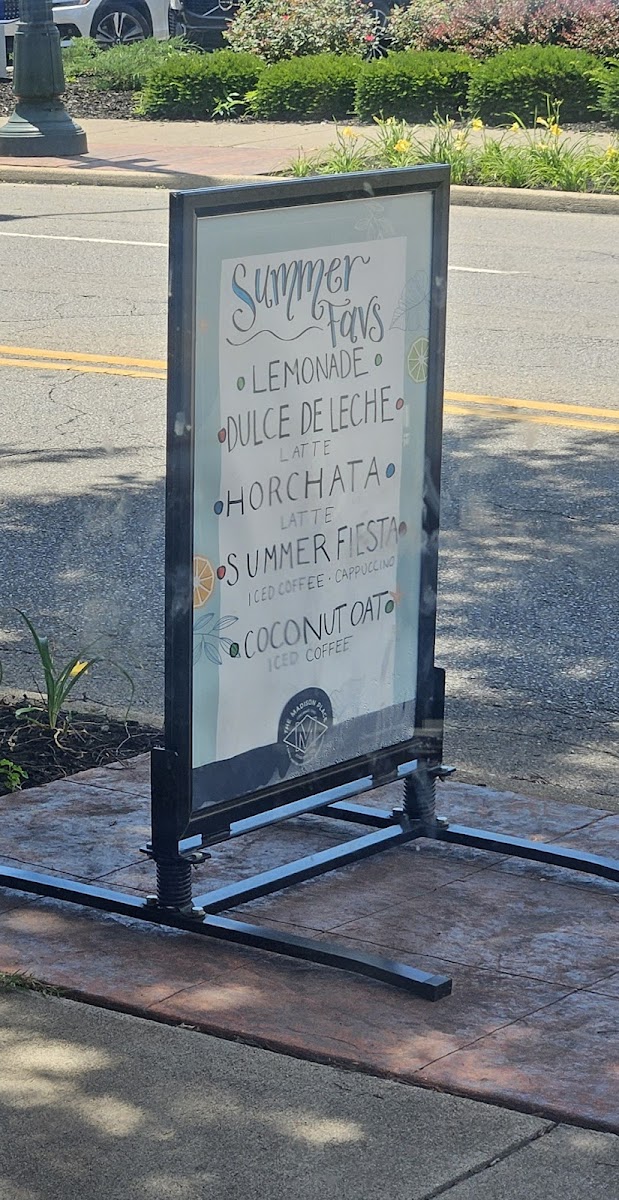 Summer
Favs
LEMONADE
DULCE DE LECHE
LATTE
HORCHATA
LATTE
SUMMER FIESTA
ICED COFFEE · CAPPUCCINO
COCONUT OAT
ICED COFFEE
THE MADISON PLACE
M